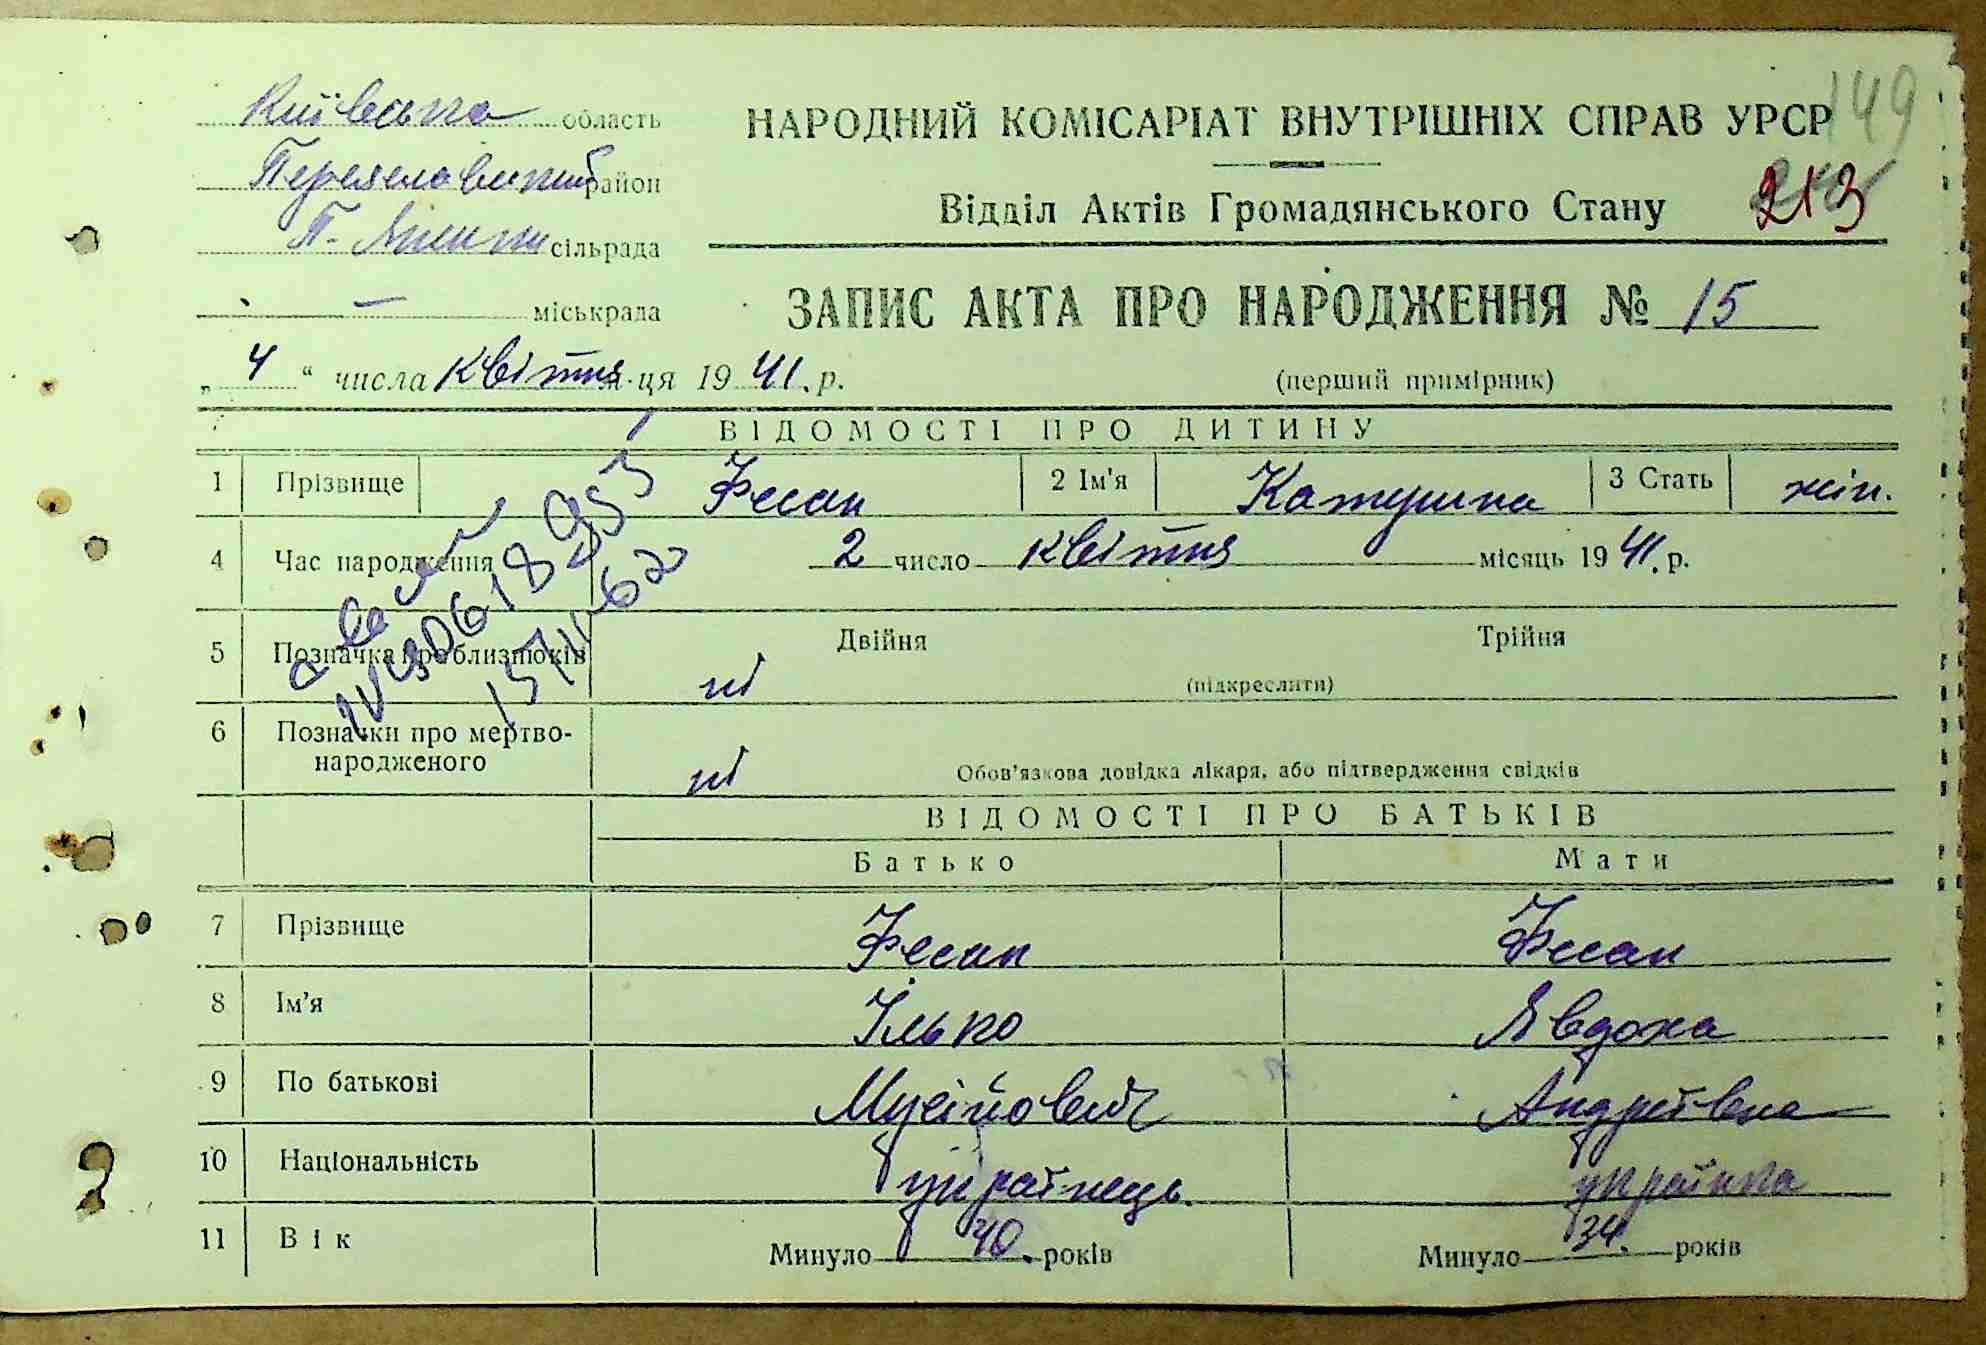 149
Київська область
НАРОДНИЙ КОМІСАРІАТ ВНУТРІШНІХ СПРАВ УРСР
Переяславський район
Відділ Актів Громадянського Стану 213
П- сільрада
— міськрада
ЗАПИС АКТА ПРО НАРОДЖЕННЯ № 15
„ 4 “ числа квітня м-ця 19 41. р.
(перший примірник)
ВІДОМОСТІ ПРО ДИТИНУ
1 Прізвище Фесан 2 Ім'я Катерина 3 Стать жін.
4 Час народження 2 число квітня місяць 19 41. р.
5 Позначка про близнюків ні Двійня Трійня
(підкреслити)
6 Позначки про мертво-
народженого ні Обов'язкова довідка лікаря, або підтвердження свідків
ВІДОМОСТІ ПРО БАТЬКІВ
Батько Мати
7 Прізвище Фесан Фесан
8 Ім'я Ілько Явдоха
9 По батькові Мусійович Андріївна
10 Національність українець українка
11 Вік Минуло 40. років Минуло 34. років